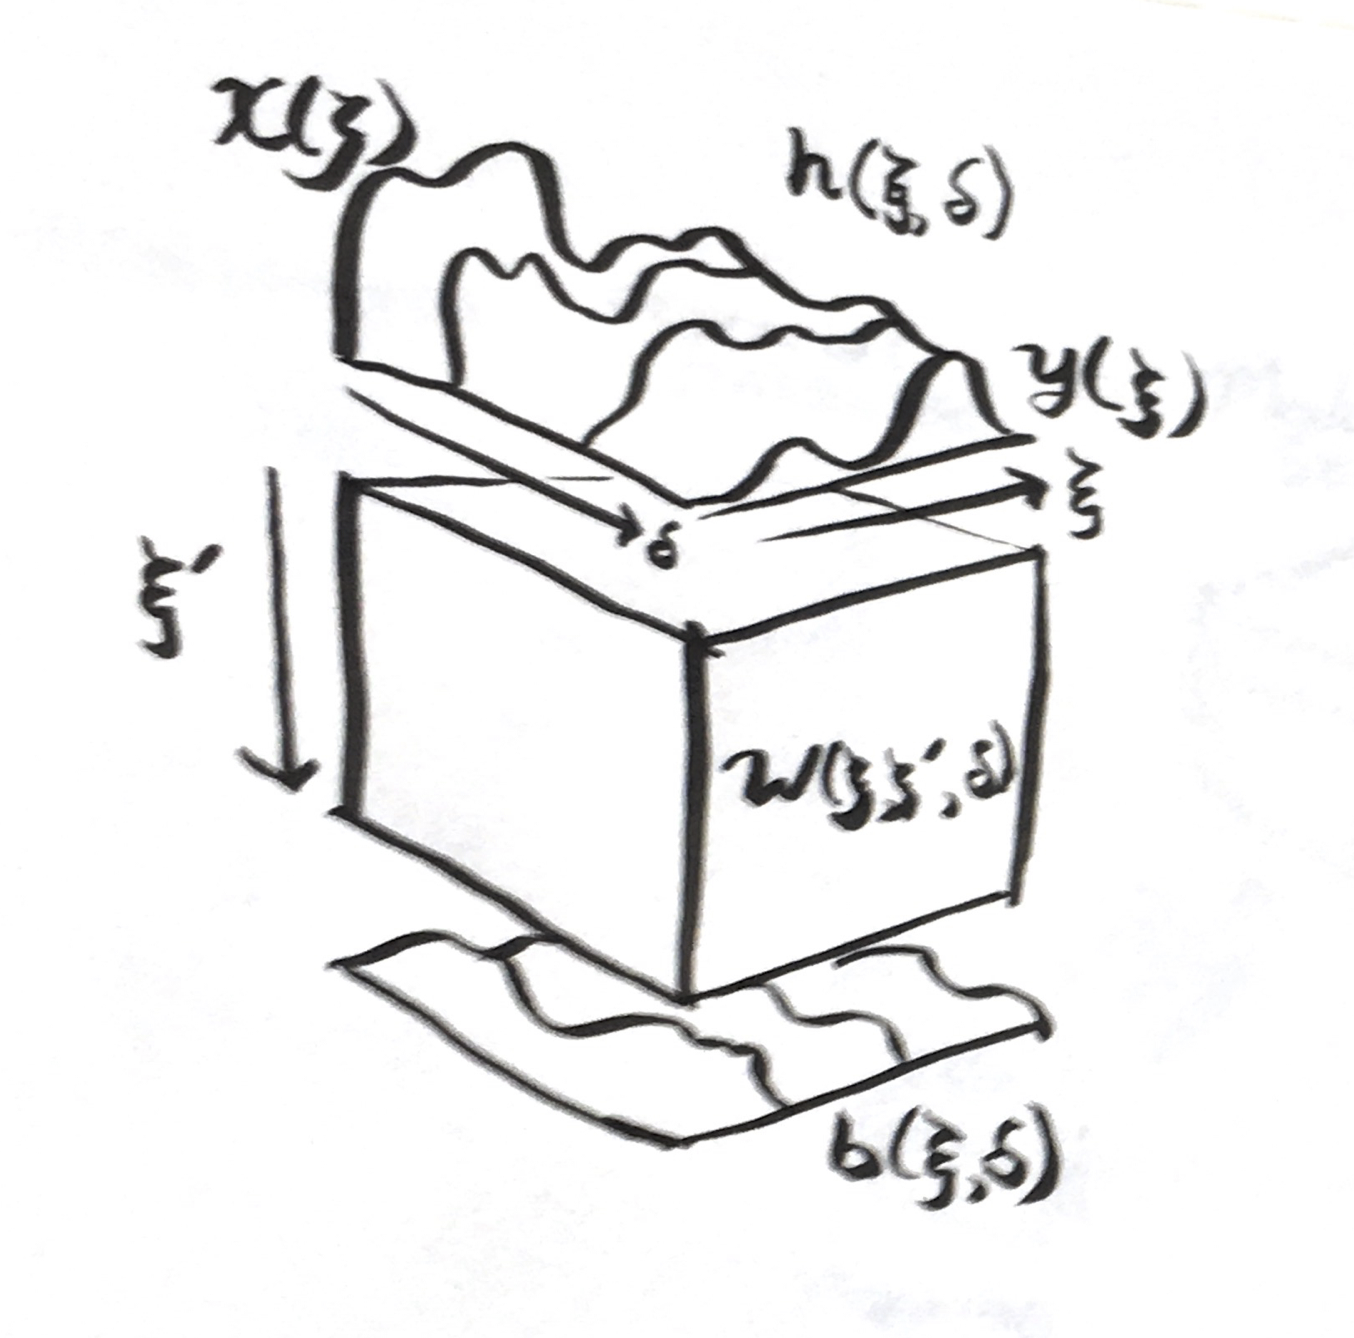 x(ξ)
h(ξ,δ)
y(ξ)
ξ
δ
ξ′
w(ξξ′,δ)
b(ξ,δ)